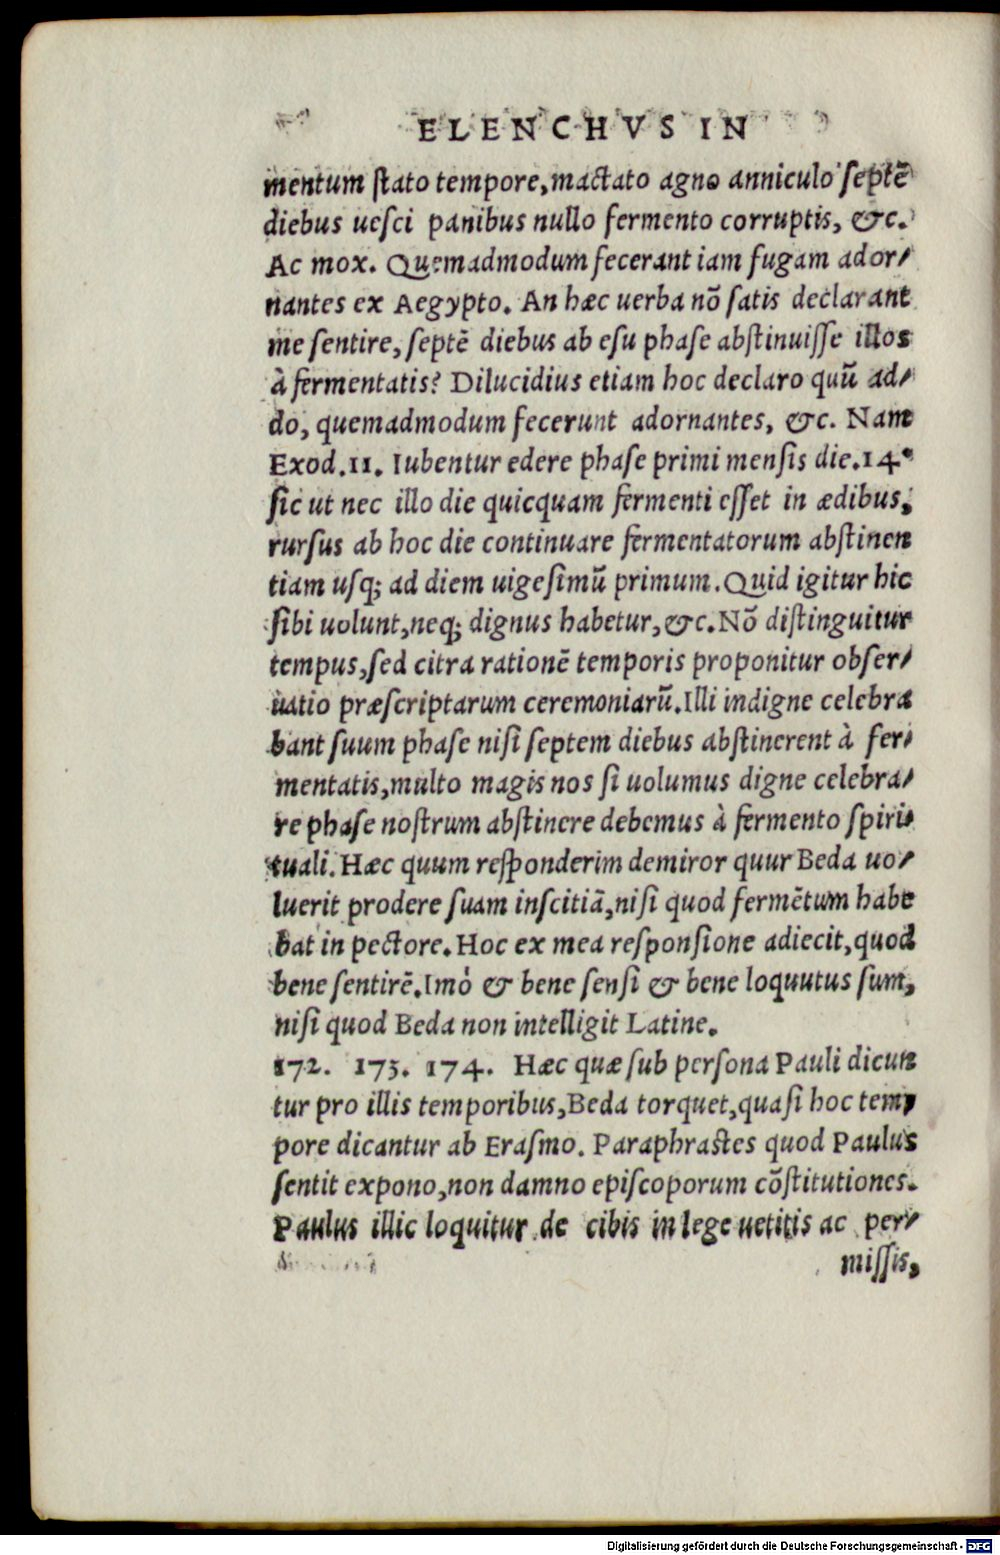 ELENCHVS IN
mentum stato tempore, mactato agno anniculo septẽ
diebus uesci panibus nullo fermento corruptis, &c.
Ac mox. Quemadmodum fecerant iam fugam ador⸗
nantes ex Aegypto. An hæc uerba nõ satis declarant
me sentire, septẽ diebus ab esu phase abstinuisse illos
à fermentatis? Dilucidius etiam hoc declaro quũ ad⸗
do, quemadmodum fecerunt adornantes, &c. Nam
Exod.11. Iubentur edere phase primi mensis die.14.
sic ut nec illo die quicquam fermenti esset in ædibus,
rursus ab hoc die continuare fermentatorum abstinen
tiam usq; ad diem uigesimũ primum. Quid igitur hic
sibi uolunt, neq; dignus habetur, &c. Nõ distinguitur
tempus, sed citra rationẽ temporis proponitur obser⸗
uatio præscriptarum ceremoniarũ. Illi indigne celebra
bant suum phase nisi septem diebus abstinerent à fer⸗
mentatis, multo magis nos si uolumus digne celebra⸗
re phase nostrum abstinere debemus à fermento spiri⸗
tuali. Hæc quum responderim demiror quur Beda uo⸗
luerit prodere suam inscitiã, nisi quod fermẽtum habe
bat in pectore. Hoc ex mea responsione adiecit, quod
bene sentirẽ. Imò & bene sensi & bene loquutus sum,
nisi quod Beda non intelligit Latine.
172. 173. 174. Hæc quæ sub persona Pauli dicun
tur pro illis temporibus, Beda torquet, quasi hoc tem⸗
pore dicantur ab Erasmo. Paraphrastes quod Paulus
sentit expono, non damno episcoporum cõstitutiones.
Paulus illic loquitur de cibis in lege uetitis ac per⸗
missis,
Digitalisierung gefördert durch die Deutsche Forschungsgemeinschaft - DFG